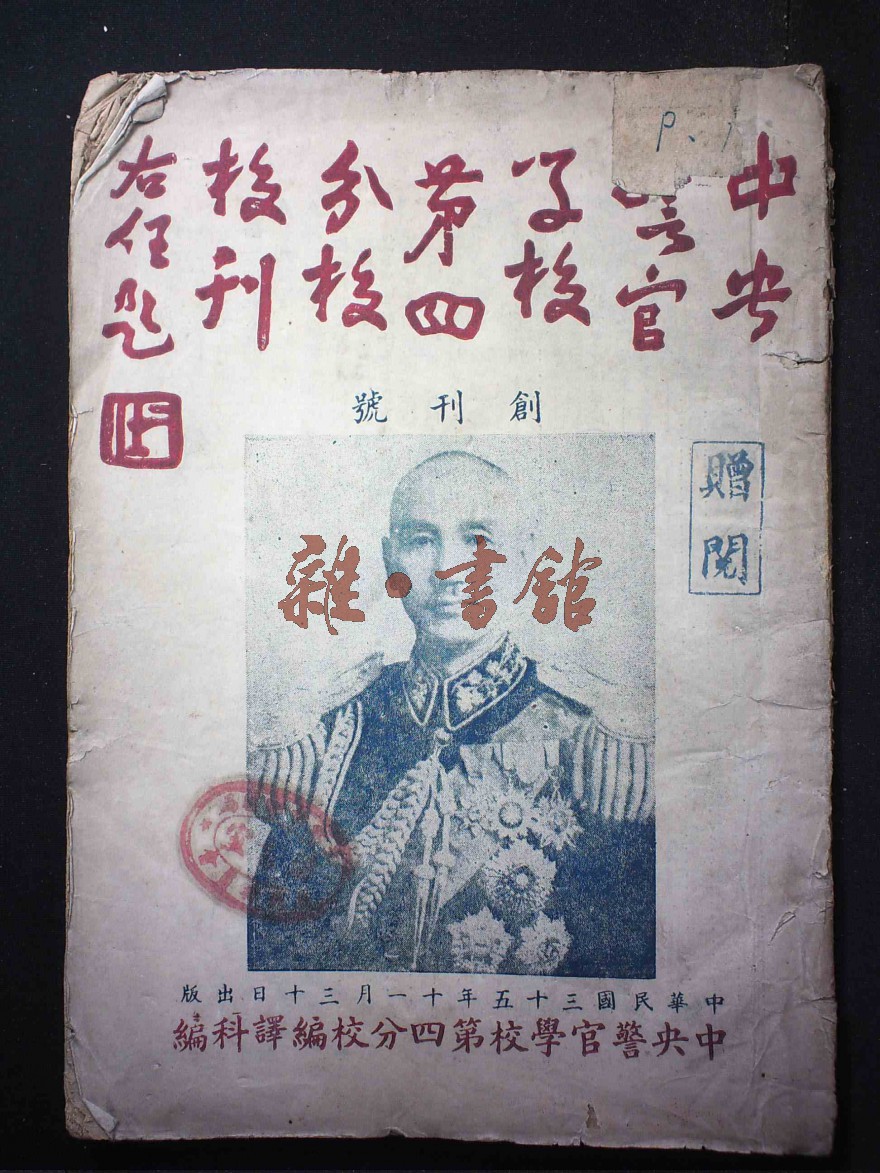 中央警官学校第四分校校刊
右任题
創刊號
贈閱
雜·書館
中華民國三十五年十一月三十日出版
中央警官學校第四分校編譯科編
P.